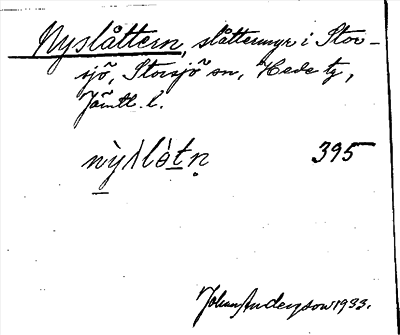 Nyslåttern, slåttermyr i Stor-
sjö, Storsjö sn, Hede tg,
Jämtl. l.
395
Johan Anderson 1933.